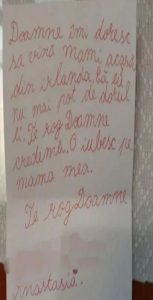 Doamne îmi doresc
sa vină mami acasă
din irlanda că eu
nu mai pot de dorul
ei. Te rog Doamne
credimă. O iubesc pe
mama mea.
Te rog Doamne
Anastasia.